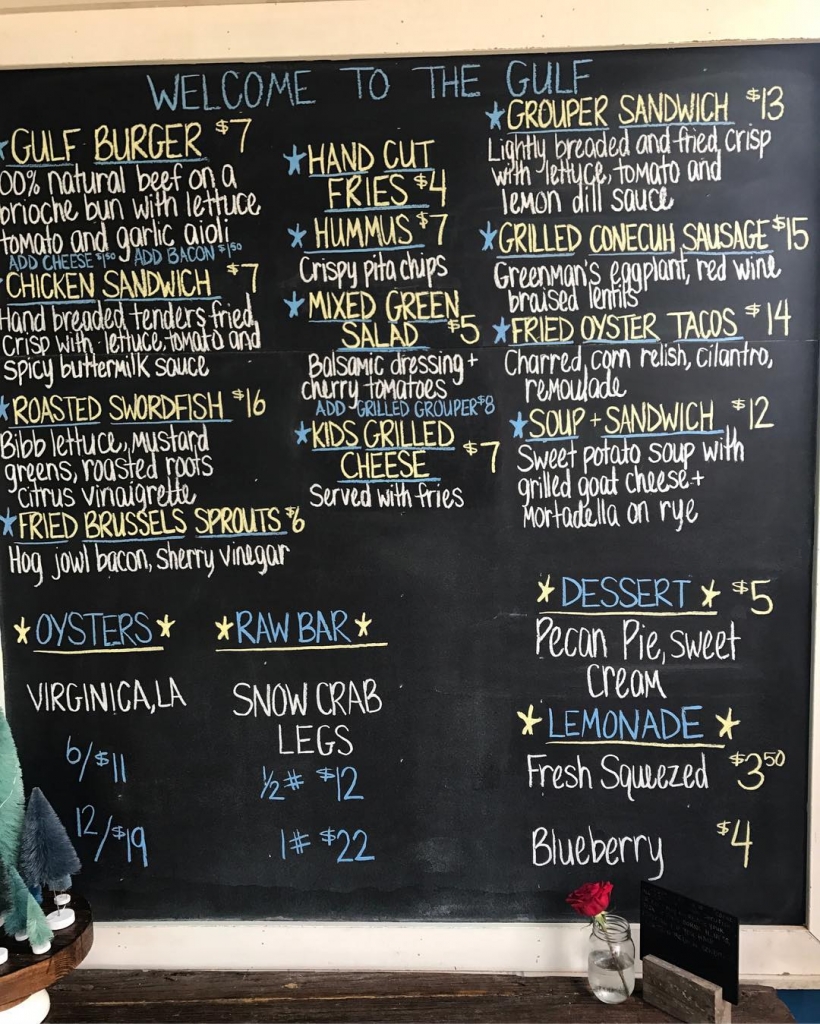 WELCOME TO THE GULF
GULF BURGER $7
00% natural beef on a
brioche bun with lettuce
tomato and garlic aioli
ADD CHEESE $1.50 ADD BACON $1.50
CHICKEN SANDWICH $7
Hand breaded tenders fried
crisp with lettuce, tomato and
spicy buttermilk sauce
ROASTED SWORDFISH $16
Bibb lettuce, mustard
greens, roasted roots
citrus vinaigrette
FRIED BRUSSELS SPROUTS $6
Hog jowl bacon, sherry vinegar
HAND CUT
FRIES $4
HUMMUS $7
Crispy pita chips
MIXED GREEN
SALAD $5
Balsamic dressing +
cherry tomatoes
ADD GRILLED GROUPER $8
KIDS GRILLED
CHEESE $7
Served with fries
GROUPER SANDWICH $13
Lightly breaded and fried, crisp
with lettuce, tomato and
lemon dill sauce
GRILLED CONECUH SAUSAGE $15
Greenman's eggplant, red wine
braised lentils
FRIED OYSTER TACOS $14
Charred, corn relish, cilantro,
remoulade
SOUP + SANDWICH $12
Sweet potato soup with
grilled goat cheese +
mortadella on rye
OYSTERS
VIRGINICA, LA
6/$11
12/$19
RAW BAR
SNOW CRAB
LEGS
½# $12
1# $22
DESSERT $5
Pecan Pie, sweet
cream
LEMONADE
Fresh Squeezed $3.50
Blueberry $4